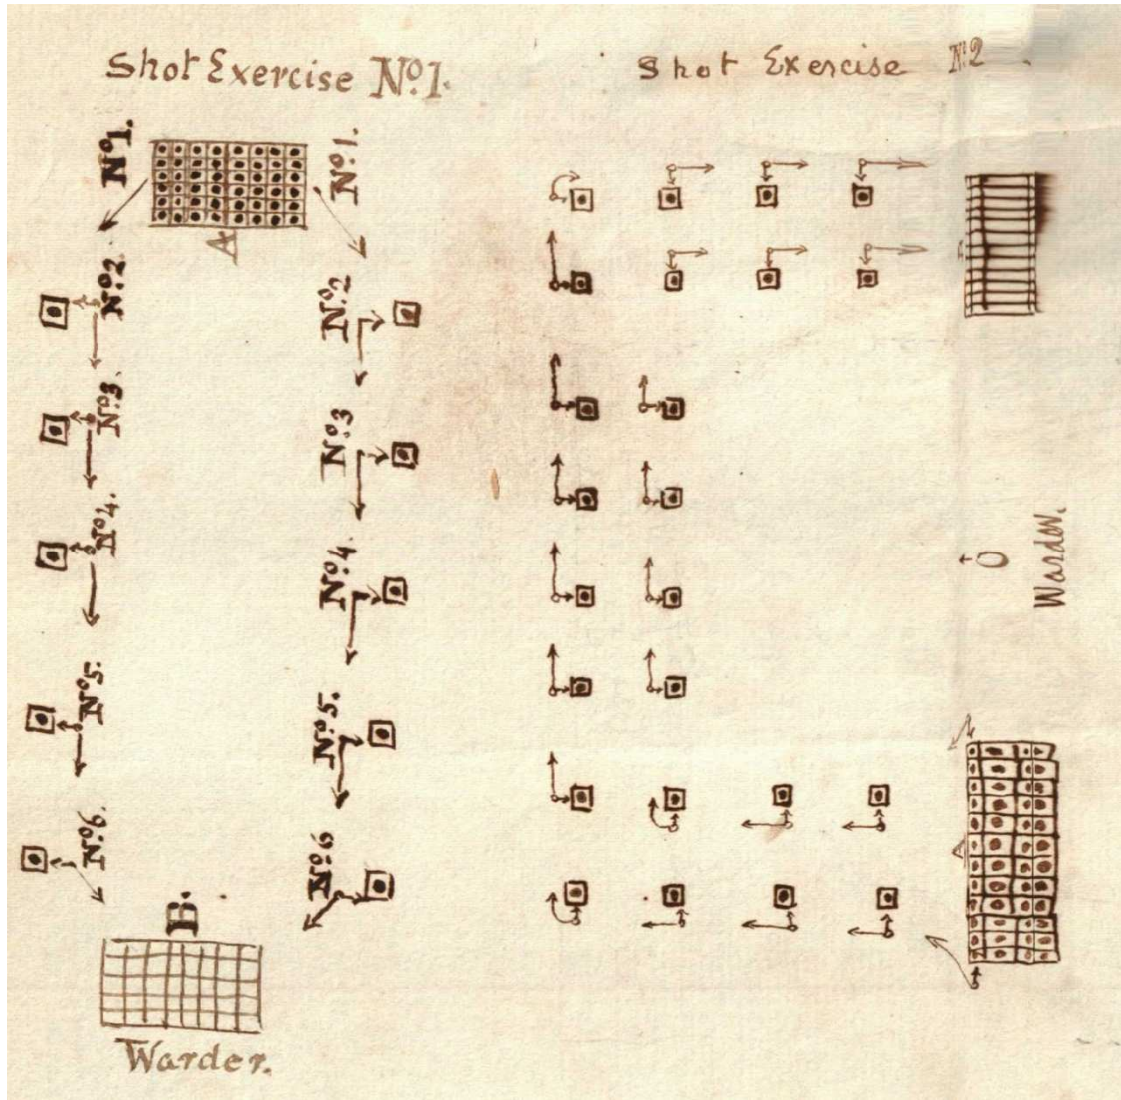 Shot Exercise Nº1.
Nº1.
Nº1.
A
Nº2.
Nº2
Nº3.
Nº3
Nº4.
Nº4.
Nº5.
Nº5.
Nº6.
Nº6
B.
Warder.
Shot Exercise Nº2
Warder.
A